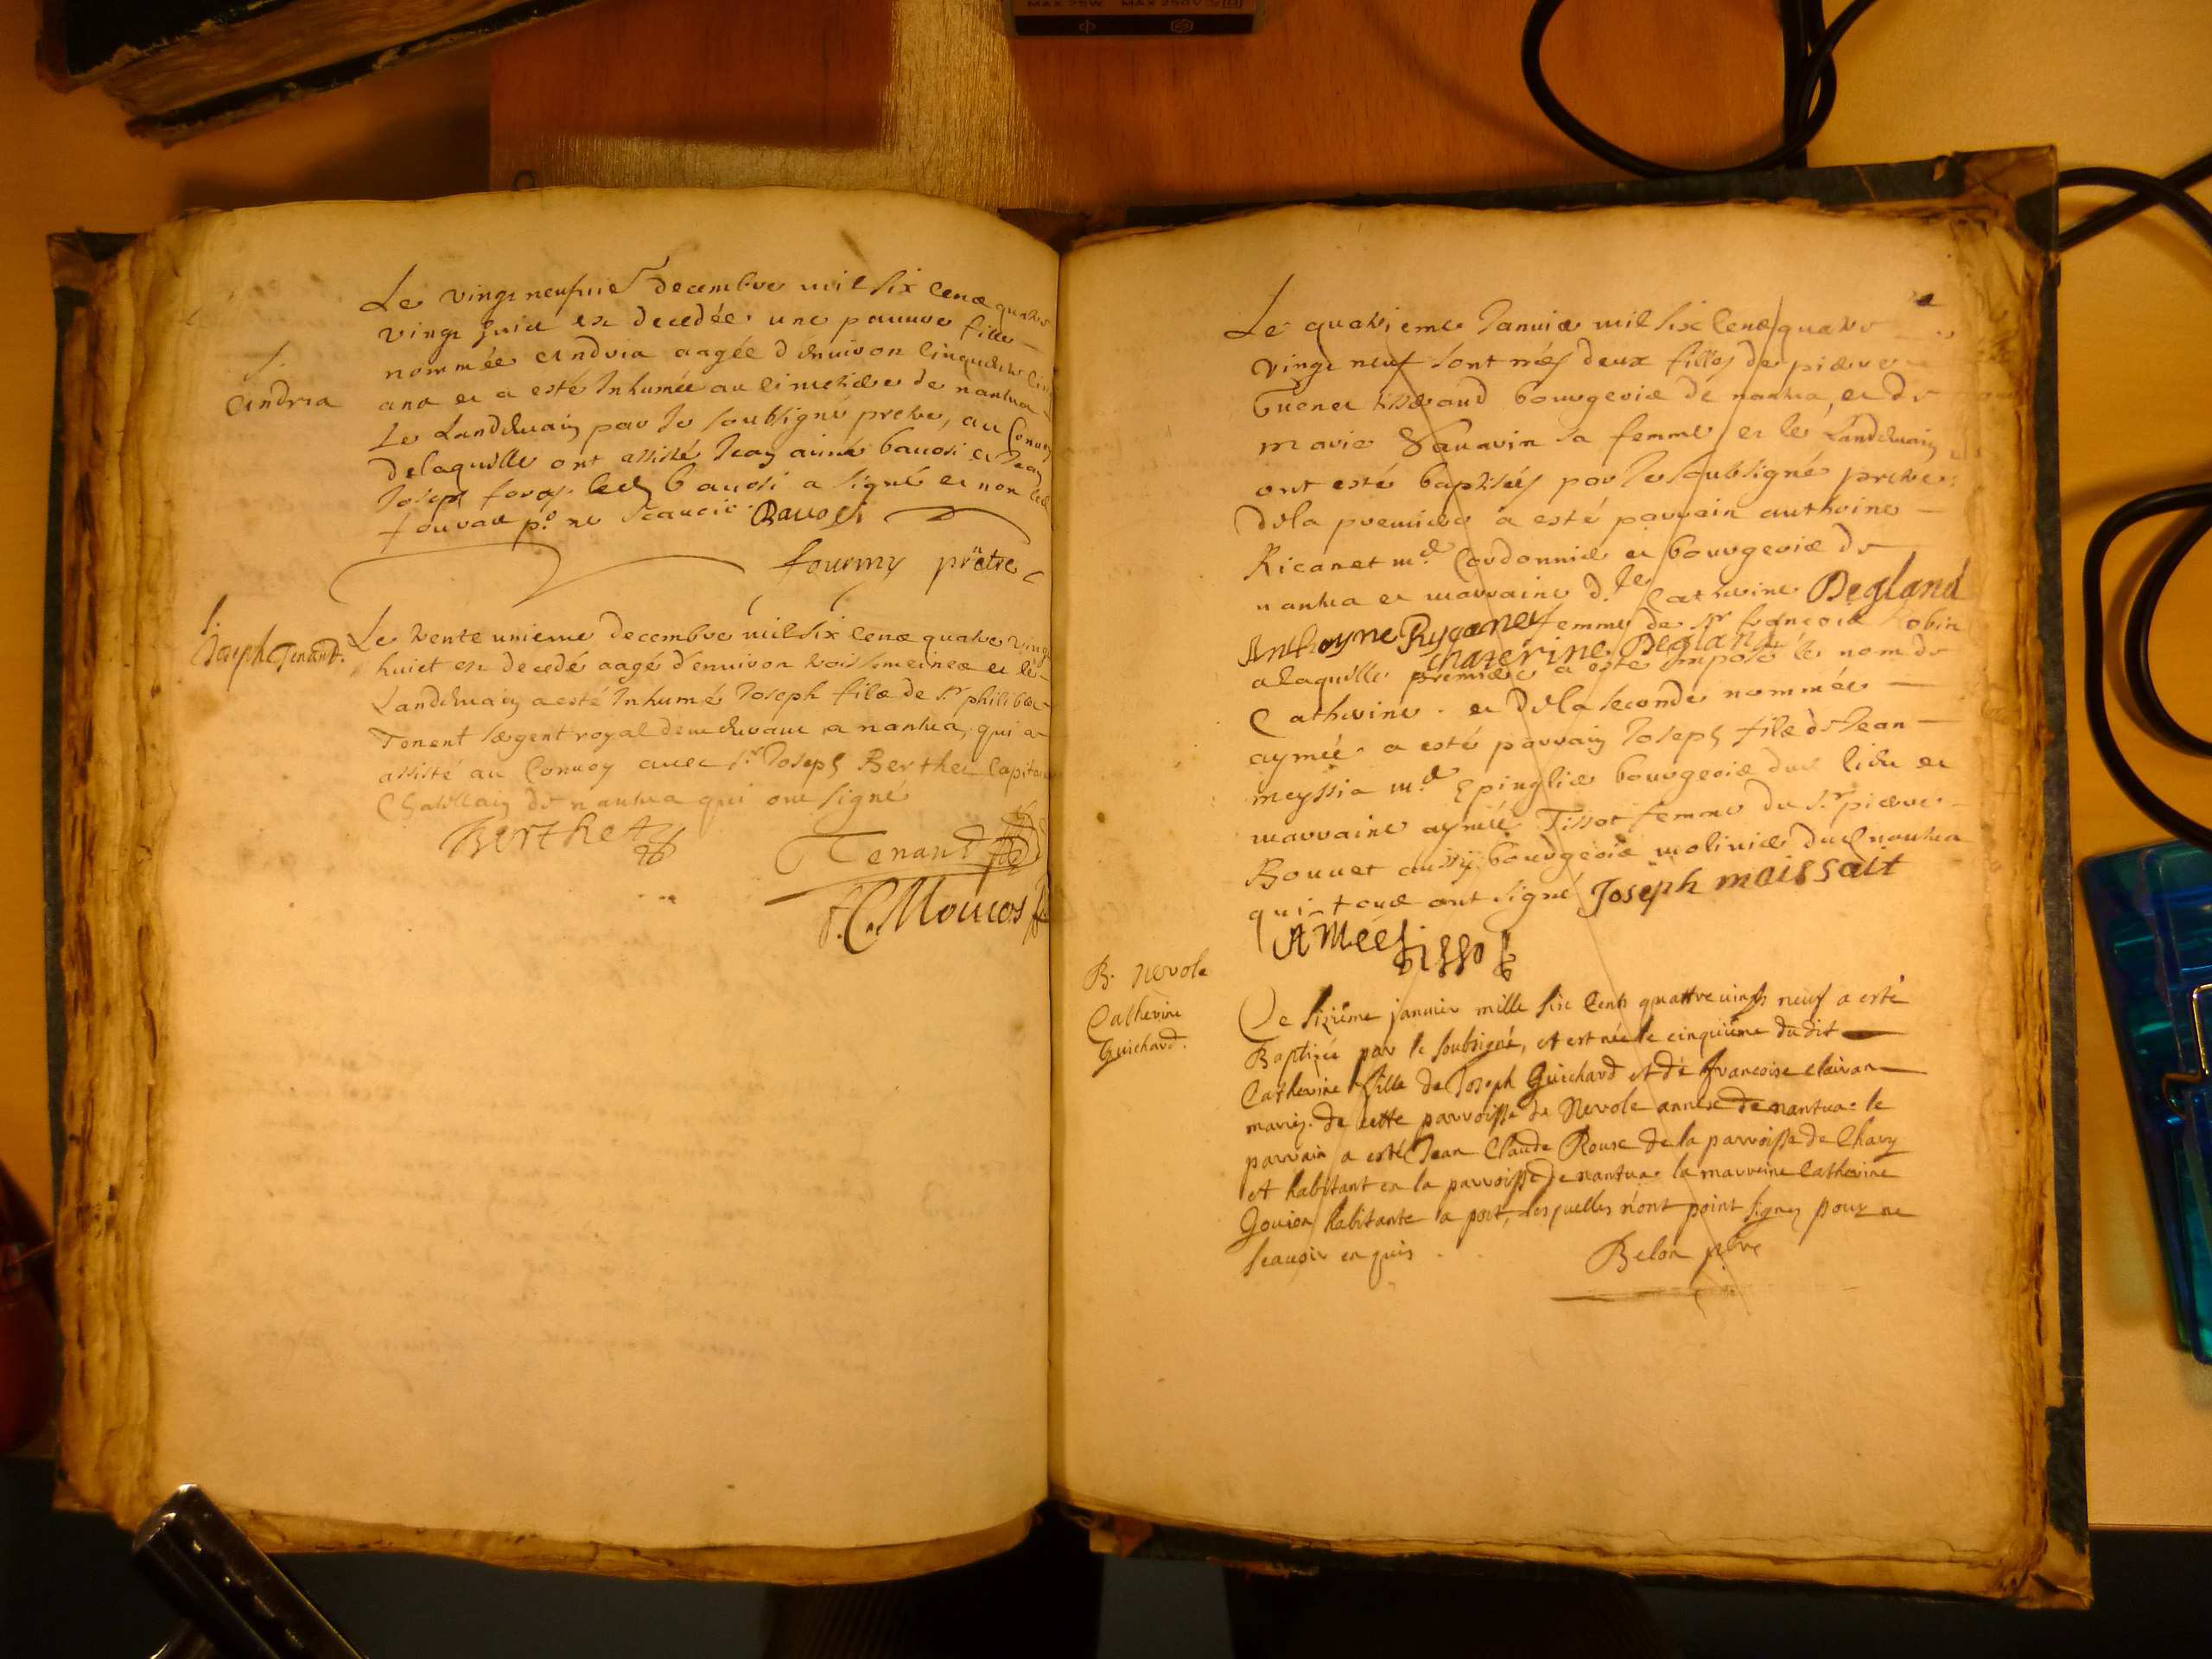 MAX 75W MAX 250V
Le vingt neufvie decembre mil six cent quatre
vingt huict est decedée une pauvre fille
nommée andria aagée d'environ cinquante cinq
S.
andria
ans et a esté Inhumée au cimetiere de nantua
Le Landemain par Je soubsigné pretre, au Convoy
delaquelle ont assisté Jean aimé bauosi et Jean
Joseph led bauosi a signé et non led
po ne scauoir. Bauosi
fourmy prêtre
S.
Joseph Tenand.
Le trente unieme decembre mil six cent quatre vingt
huict est decedé aagé d'environ trois semeines et le
Landemain a esté Inhumé Joseph fils de Sr philibert
Tenent sergent royal demeurant a nantua, qui a
assisté au Convoy avec Sr Joseph Berthet Capitaine
Chastelain de nantua qui ont signé
Berthet
Tenand
Le quatrieme Januier mil six cent quatre
vingt neuf sont nées deux filles de pierre
tisserand bourgeois de nantua, et de
marie sa femme et le Landemain
ont esté baptisées par Je soubsigné pretre
dela premiere a esté parrain anthoine
Ricanet md Cordonnier et bourgeois de
nantua et marraine d.lle Catherine Degland
Anthoyne Ryganet femme de Sr francois Robin
Chaterine Degland
a laquelle premiere a esté imposé le nom de
Catherine. et dela seconde nommée
aymée a esté parrain Joseph fils de Jean
meyssia md Epinglier bourgeois dud lieu et
marraine aymée Tissot femme du Sr pierre
Bouuet aussy bourgeois molinier dud nantua
qui tous ont signé Joseph maissait
Amée tissot
B. Nerole
Catherine
Guichard.
Ce sizième janvier mille six cents quattre uingts neuf a esté
Baptizée par le soubsigné, et est née le cinquième dudit
Catherine fille de Joseph Guichard et de francoise clairan
mariez. de cette parroisse de Nerole annexe de nantua. le
parrain a esté Jean Claude Rouse de la parroisse de Chary
et habitant en la parroisse de nantua. la marreine Catherine
Gouion habitante a port, lesquelles n'ont point signez pour ne
scauoir enquis.
Belon pbre